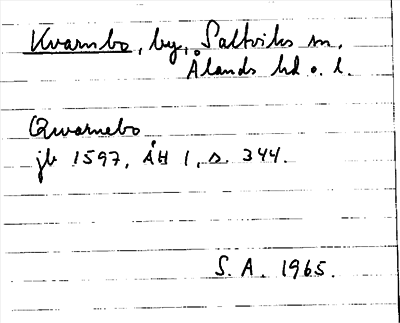 Kvarnbo, by, Saltviks sn,
Ålands hd o. l.
Qwarnebo
jb 1597, ÅH 1, s. 344.
S. A. 1965.